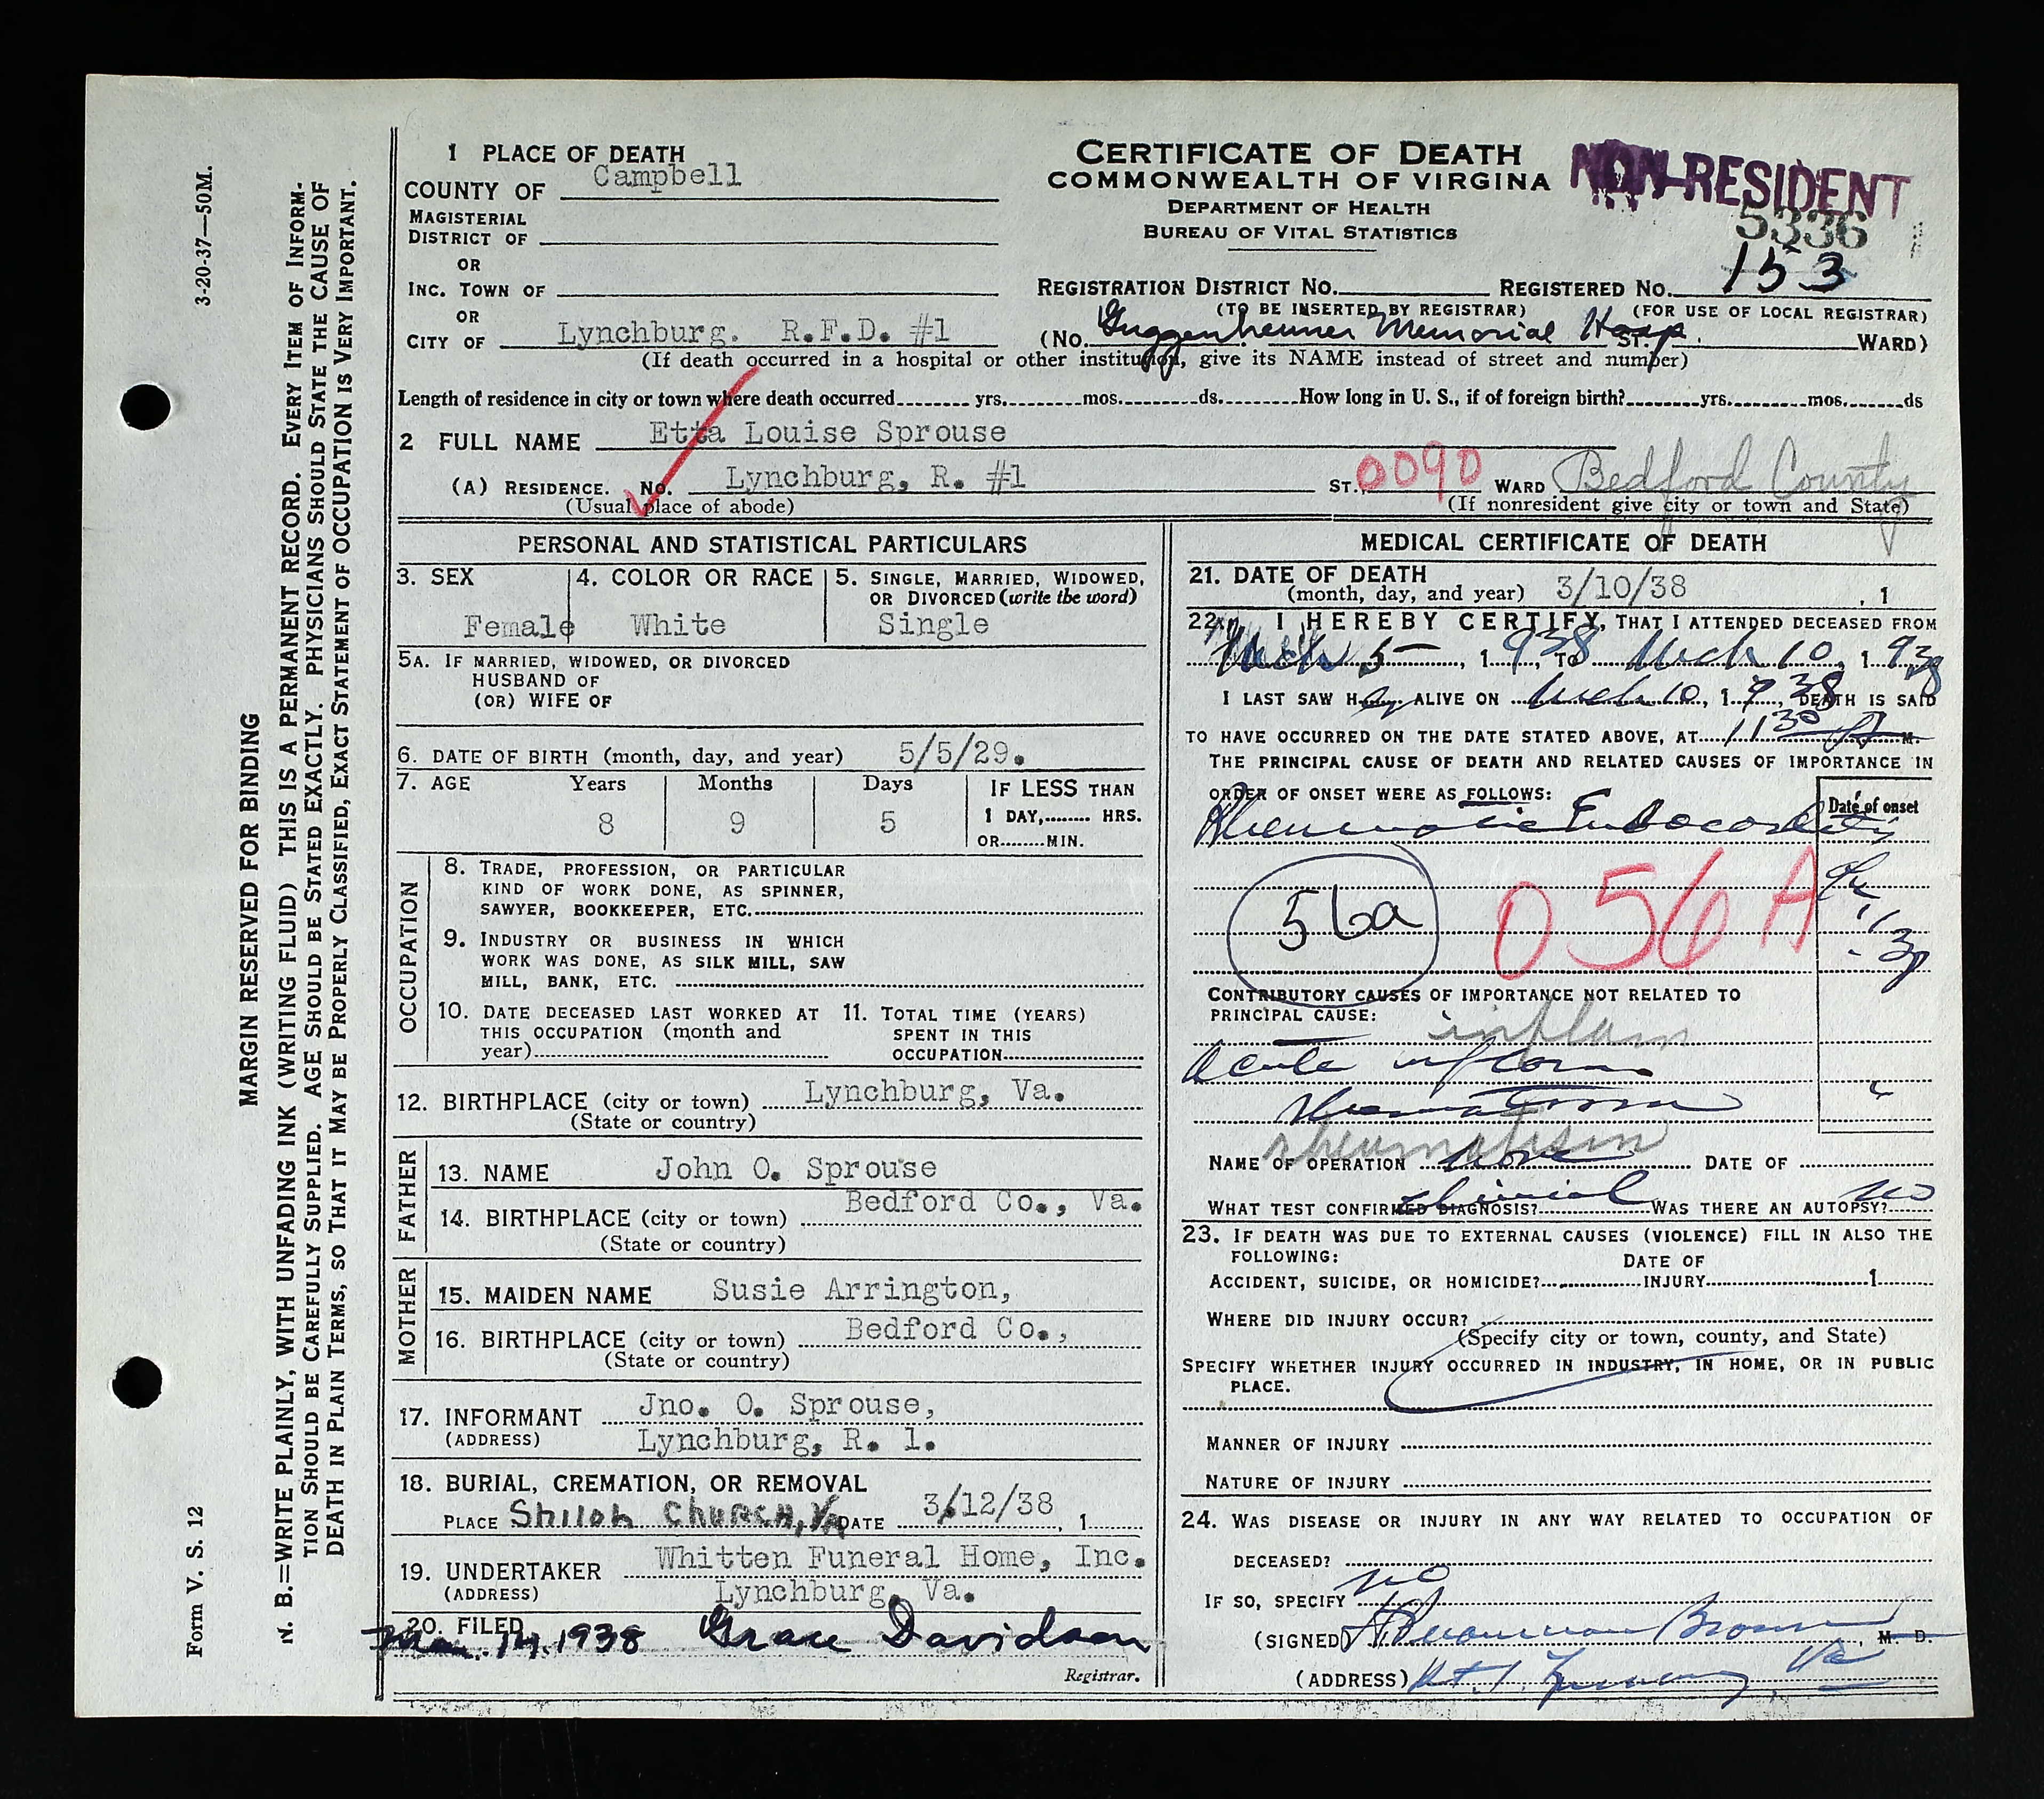 1 PLACE OF DEATH
COUNTY OF Campbell
MAGISTERIAL
DISTRICT OF
OR
INC. TOWN OF
OR
CITY OF Lynchburg. R.F.D. #1
CERTIFICATE OF DEATH
COMMONWEALTH OF VIRGINA
DEPARTMENT OF HEALTH
BUREAU OF VITAL STATISTICS
NON-RESIDENT
5336
REGISTRATION DISTRICT NO. REGISTERED NO. 153
(TO BE INSERTED BY REGISTRAR) (FOR USE OF LOCAL REGISTRAR)
(NO. Guggenheimer Memorial Hosp. ST. WARD)
(If death occurred in a hospital or other institution, give its NAME instead of street and number)
Length of residence in city or town where death occurred yrs. mos. ds. How long in U. S., if of foreign birth? yrs. mos. ds
2 FULL NAME Etta Louise Sprouse
(A) RESIDENCE. NO. Lynchburg, R. #1 ST. 0090 WARD Bedford County
(Usual place of abode) (If nonresident give city or town and State)
PERSONAL AND STATISTICAL PARTICULARS
3. SEX 4. COLOR OR RACE 5. SINGLE, MARRIED, WIDOWED,
OR DIVORCED (write the word)
Female White Single
5A. IF MARRIED, WIDOWED, OR DIVORCED
HUSBAND OF
(OR) WIFE OF
6. DATE OF BIRTH (month, day, and year) 5/5/29.
7. AGE Years Months Days IF LESS THAN
8 9 5 1 DAY, HRS.
OR MIN.
OCCUPATION
8. TRADE, PROFESSION, OR PARTICULAR
KIND OF WORK DONE, AS SPINNER,
SAWYER, BOOKKEEPER, ETC.
9. INDUSTRY OR BUSINESS IN WHICH
WORK WAS DONE, AS SILK MILL, SAW
MILL, BANK, ETC.
10. DATE DECEASED LAST WORKED AT
THIS OCCUPATION (month and
year)
11. TOTAL TIME (YEARS)
SPENT IN THIS
OCCUPATION
12. BIRTHPLACE (city or town) Lynchburg, Va.
(State or country)
FATHER
13. NAME John O. Sprouse
14. BIRTHPLACE (city or town) Bedford Co., Va.
(State or country)
MOTHER
15. MAIDEN NAME Susie Arrington,
16. BIRTHPLACE (city or town) Bedford Co.,
(State or country)
17. INFORMANT Jno. O. Sprouse,
(ADDRESS) Lynchburg, R. 1.
18. BURIAL, CREMATION, OR REMOVAL
PLACE Shiloh Church, Va DATE 3/12/38, 1
19. UNDERTAKER Whitten Funeral Home, Inc.
(ADDRESS) Lynchburg, Va.
20. FILED
Mar. 14, 1938 Grace Davidson
Registrar.
MEDICAL CERTIFICATE OF DEATH
21. DATE OF DEATH
(month, day, and year) 3/10/38, 1
22. I HEREBY CERTIFY, THAT I ATTENDED DECEASED FROM
Mch 5-, 1938, TO Mch 10, 1938
I LAST SAW HER ALIVE ON Mch 10, 1938, DEATH IS SAID
TO HAVE OCCURRED ON THE DATE STATED ABOVE, AT 11 30 M.
THE PRINCIPAL CAUSE OF DEATH AND RELATED CAUSES OF IMPORTANCE IN
ORDER OF ONSET WERE AS FOLLOWS:
Date of onset
Rheumatic Endocarditis
56a 056A
CONTRIBUTORY CAUSES OF IMPORTANCE NOT RELATED TO
PRINCIPAL CAUSE:
inflam
Acute inflam
Rheumatism
rheumatism
NAME OF OPERATION None DATE OF
WHAT TEST CONFIRMED DIAGNOSIS? Clinical WAS THERE AN AUTOPSY? no
23. IF DEATH WAS DUE TO EXTERNAL CAUSES (VIOLENCE) FILL IN ALSO THE
FOLLOWING:
DATE OF
ACCIDENT, SUICIDE, OR HOMICIDE? INJURY 1
WHERE DID INJURY OCCUR?
(Specify city or town, county, and State)
SPECIFY WHETHER INJURY OCCURRED IN INDUSTRY, IN HOME, OR IN PUBLIC
PLACE.
MANNER OF INJURY
NATURE OF INJURY
24. WAS DISEASE OR INJURY IN ANY WAY RELATED TO OCCUPATION OF
DECEASED?
no
IF SO, SPECIFY
(SIGNED) Brown, M. D.
(ADDRESS) Rt. 1. Va
3-20-37—50M.
MARGIN RESERVED FOR BINDING
N. B.=WRITE PLAINLY, WITH UNFADING INK (WRITING FLUID) THIS IS A PERMANENT RECORD. EVERY ITEM OF INFORM-
TION SHOULD BE CAREFULLY SUPPLIED. AGE SHOULD BE STATED EXACTLY. PHYSICIANS SHOULD STATE THE CAUSE OF
DEATH IN PLAIN TERMS, SO THAT IT MAY BE PROPERLY CLASSIFIED, EXACT STATEMENT OF OCCUPATION IS VERY IMPORTANT.
Form V. S. 12